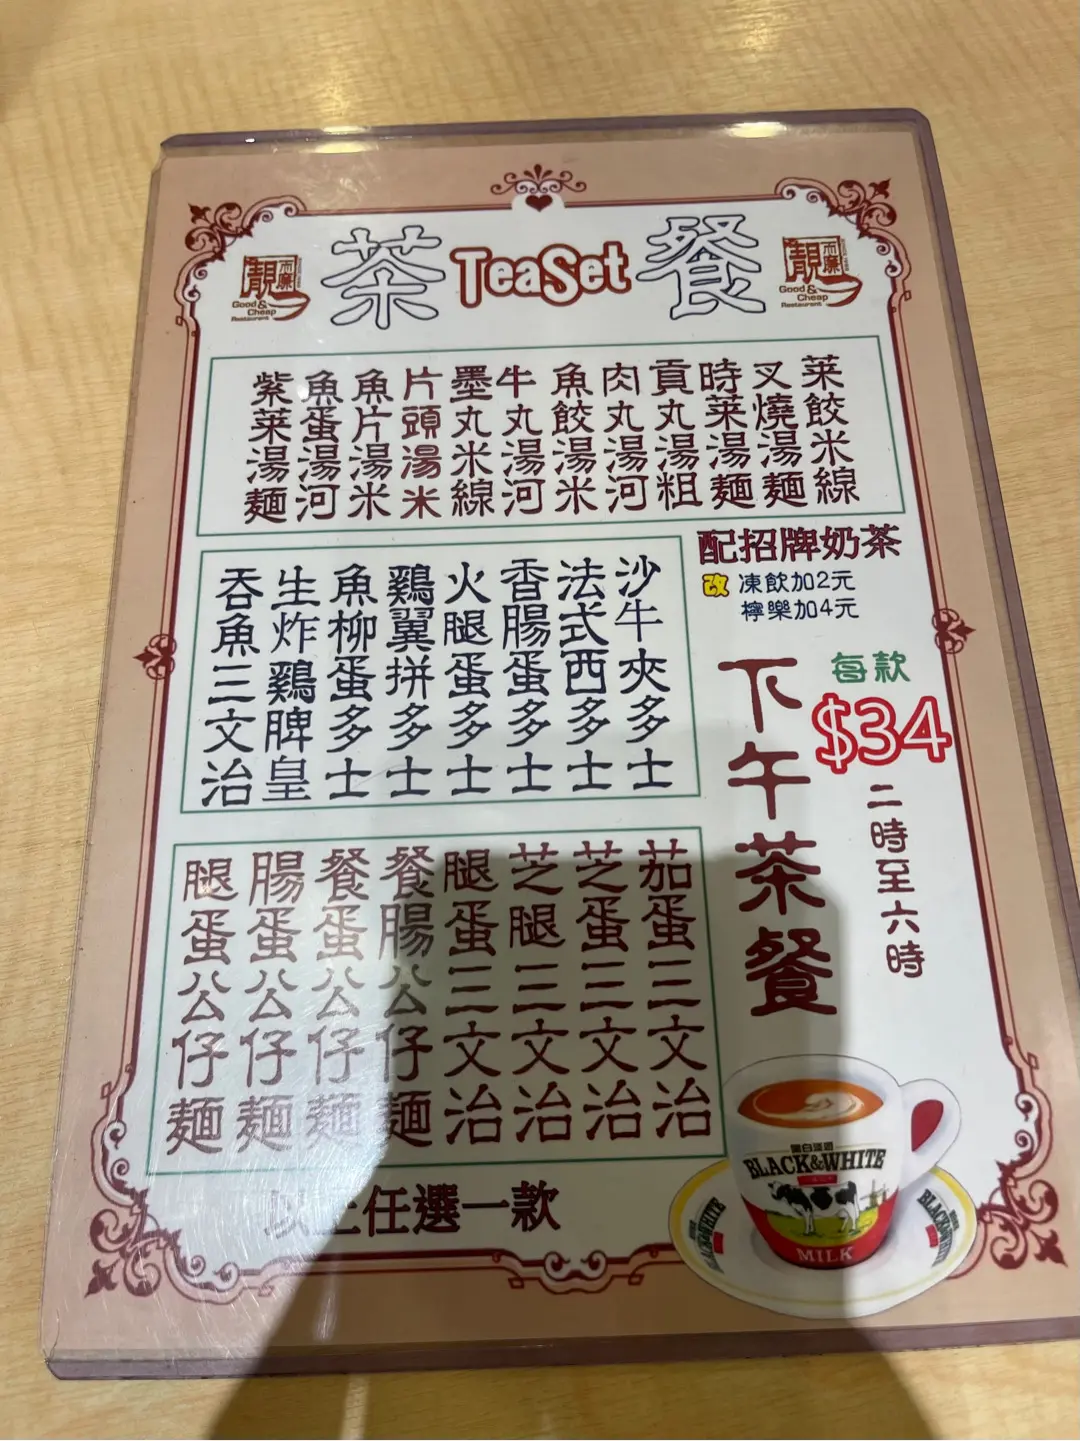 茶 TeaSet 餐
靚 而廉
Good & Cheap
Restaurant
靚 而廉
Good & Cheap
Restaurant
菜餃米線
叉燒湯麵
時菜湯麵
貢丸湯粗
肉丸湯河
魚餃湯米
牛丸湯河
墨丸米線
片頭湯米
魚片湯米
魚蛋湯河
紫菜湯麵
配招牌奶茶
改 凍飲加2元
檸樂加4元
每款
$34
下午茶餐
二時至六時
沙牛夾多士
法式西多士
香腸蛋多士
火腿蛋多士
鷄翼拼多士
魚柳蛋多士
生炸鷄脾皇
吞魚三文治
茄蛋三文治
芝蛋三文治
芝腿三文治
腿蛋三文治
餐腸公仔麵
餐蛋公仔麵
腸蛋公仔麵
腿蛋公仔麵
以上任選一款
黑白淡奶
BLACK&WHITE
MILK
BLACK&WHITE
BLACK&WHITE